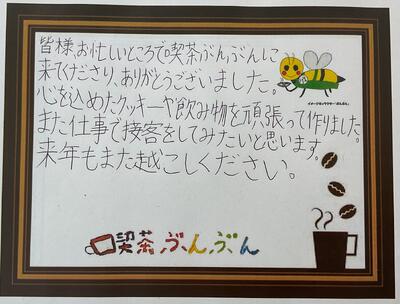 皆様、お忙しいところで喫茶ぶんぶんに
来てくださり、ありがとうございました。
イメージキャラクター「ぶんぶん」
心を込めたクッキーや飲み物を頑張って作りました。
また仕事で接客をしてみたいと思います。
来年もまた越こしください。
喫茶ぶんぶん